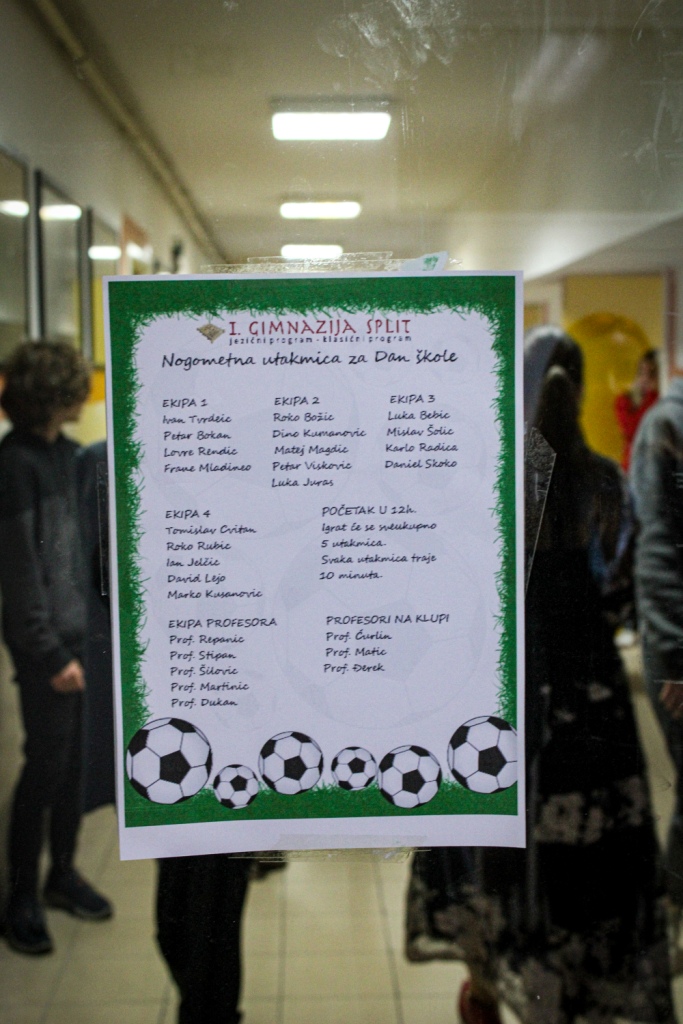 I. GIMNAZIJA SPLIT
jezični program - klasični program
Nogometna utakmica za Dan škole
EKIPA 1
Ivan Tvrdeic
Petar Bokan
Lovre Rendic
Frane Mladineo
EKIPA 2
Roko Božic
Dino Kumanovic
Matej Magdic
Petar Viskovic
Luka Juras
EKIPA 3
Luka Bebic
Mislav Šolic
Karlo Radica
Daniel Skoko
EKIPA 4
Tomislav Cvitan
Roko Rubic
Ian Jelčic
David Lejo
Marko Kusanovic
POČETAK U 12h.
Igrat če se sveukupno
5 utakmica.
Svaka utakmica traje
10 minuta.
EKIPA PROFESORA
Prof. Repanic
Prof. Stipan
Prof. Šilovic
Prof. Martinic
Prof. Dukan
PROFESORI NA KLUPI
Prof. Čurlin
Prof. Matic
Prof. Đerek